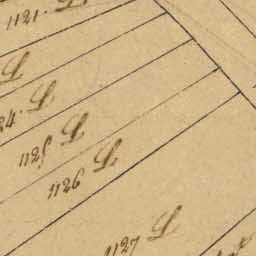 1121. L
L
24. L
1125 L
1126 L
1127 L